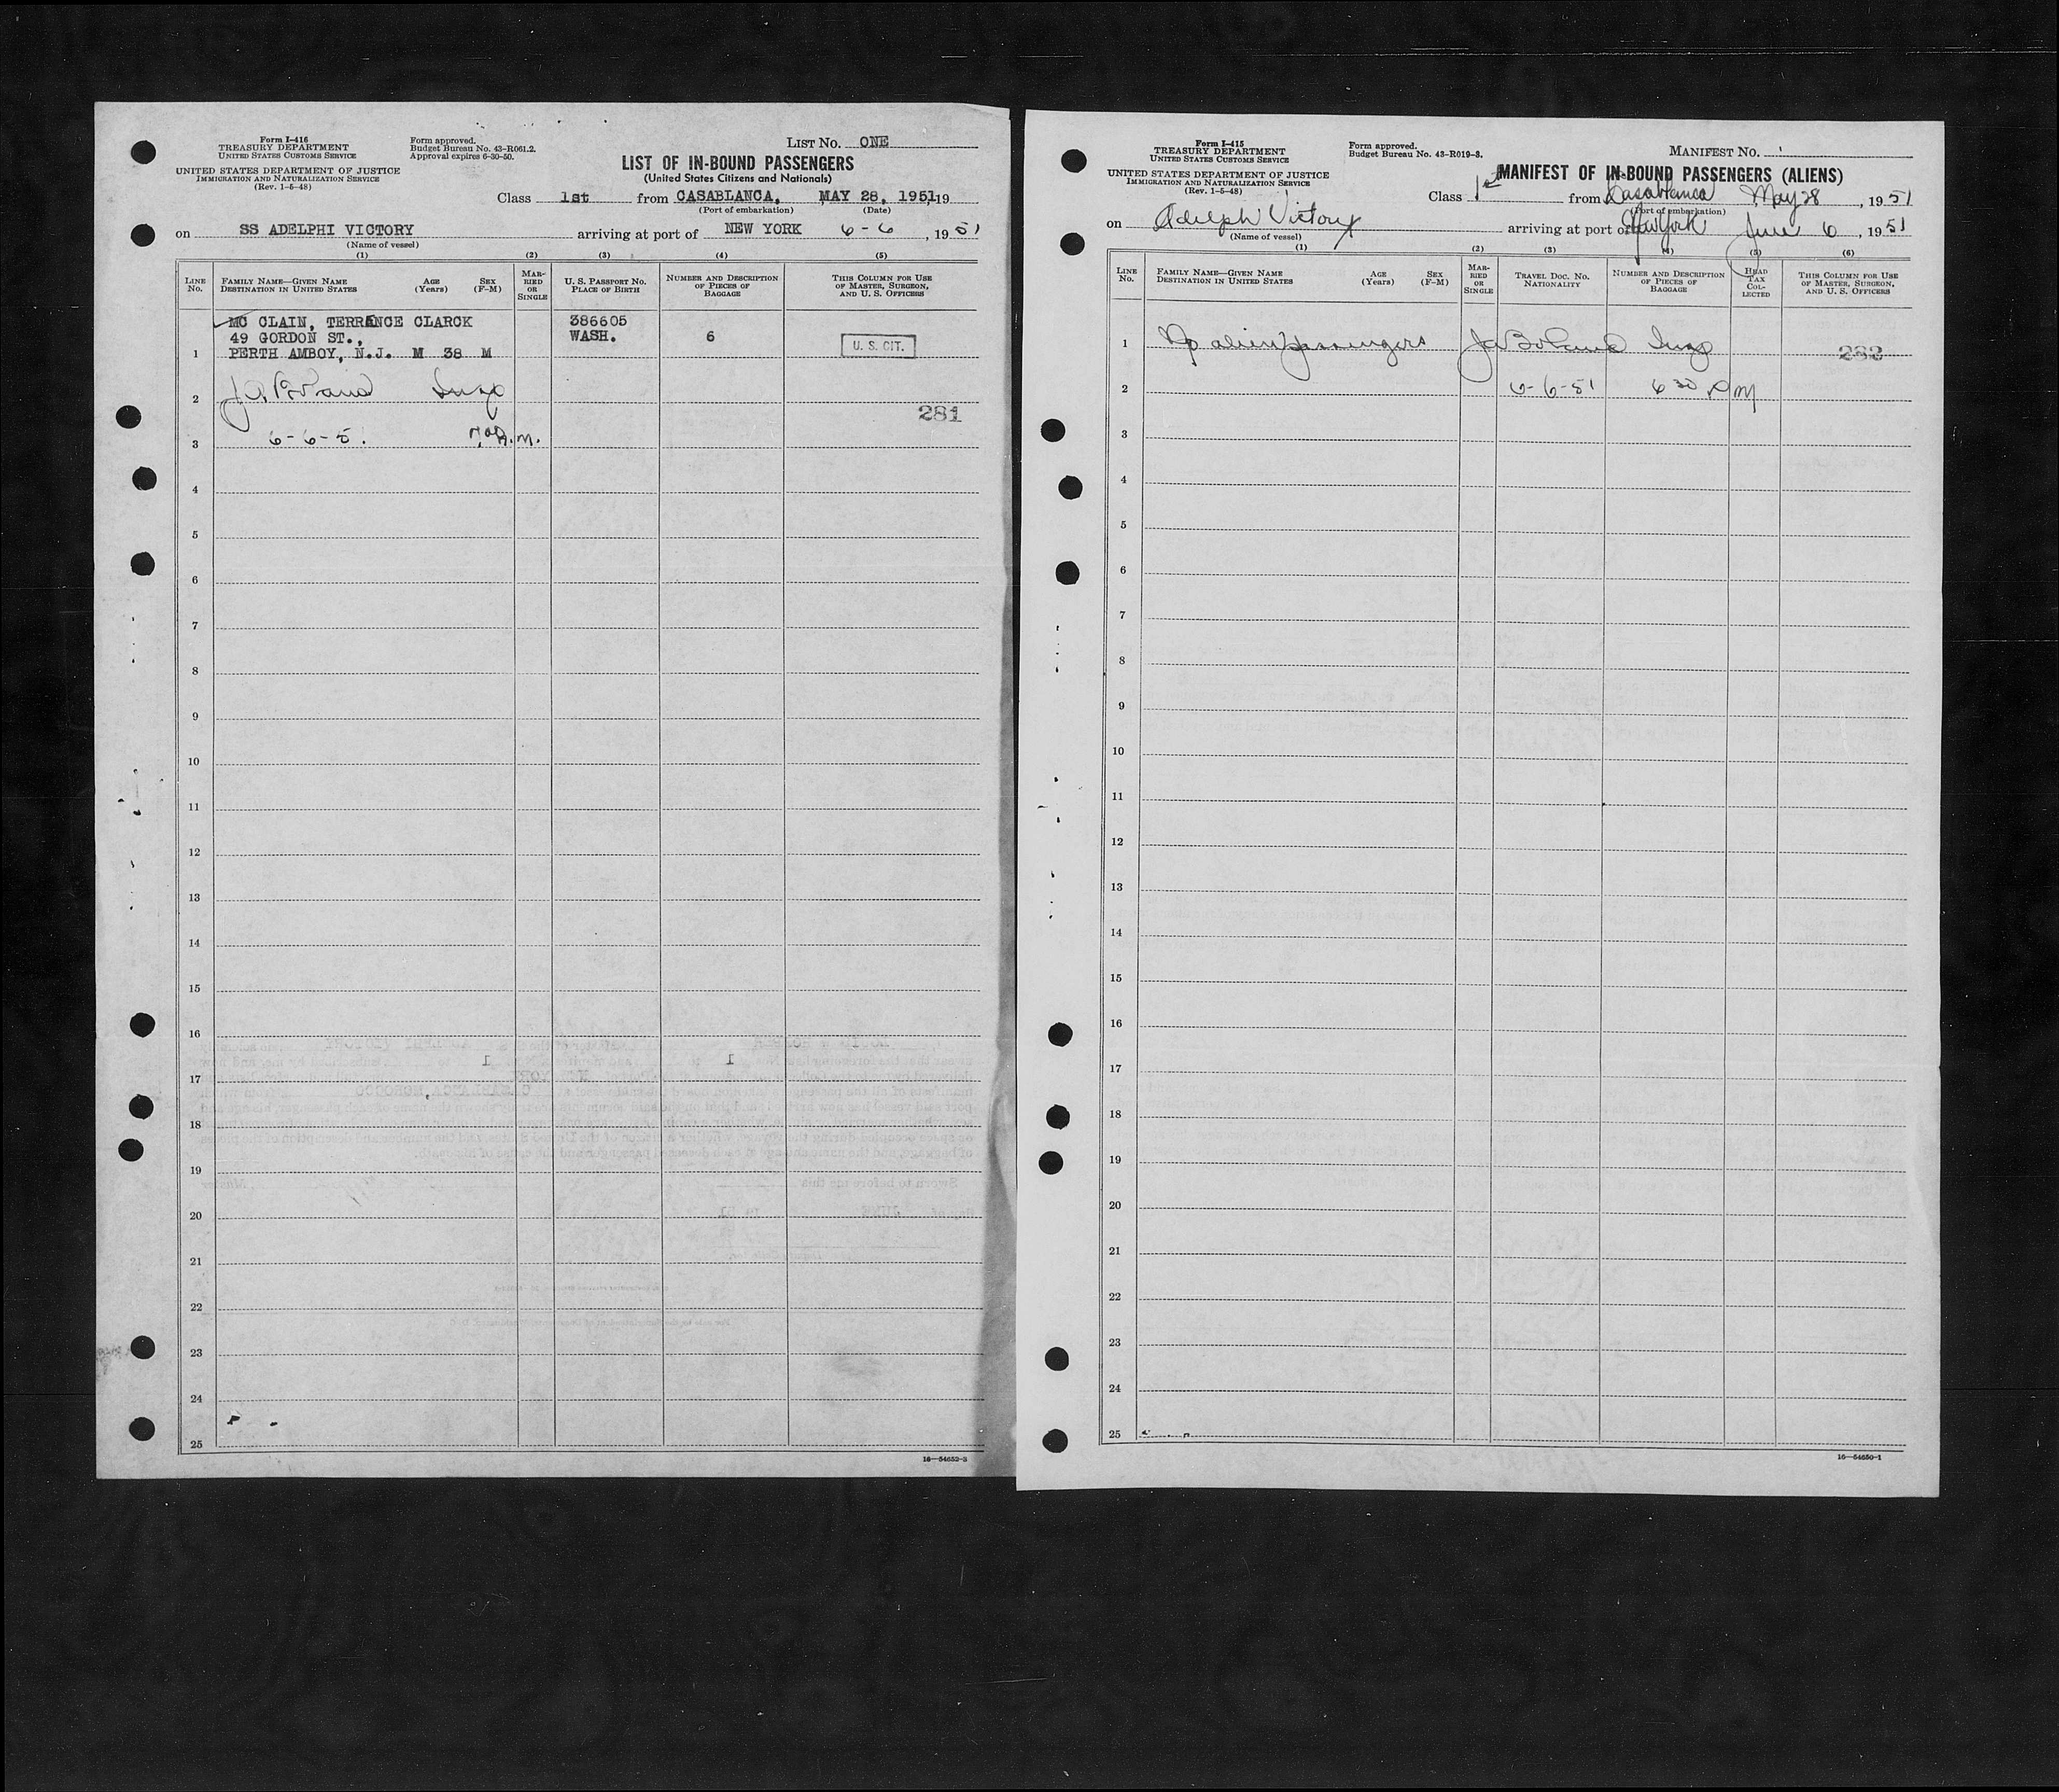 Form I-416
TREASURY DEPARTMENT
UNITED STATES CUSTOMS SERVICE
UNITED STATES DEPARTMENT OF JUSTICE
IMMIGRATION AND NATURALIZATION SERVICE
(Rev. 1-5-48)
Form approved.
Budget Bureau No. 43-R061.2.
Approval expires 6-30-50.
LIST No. ONE
LIST OF IN-BOUND PASSENGERS
(United States Citizens and Nationals)
Class 1st from CASABLANCA, MAY 28, 1951, 19
(Port of embarkation) (Date)
on SS ADELPHI VICTORY arriving at port of NEW YORK 6-6, 1951
(Name of vessel)
(1) (2) (3) (4) (5)
LINE No.
FAMILY NAME—GIVEN NAME
DESTINATION IN UNITED STATES
AGE (Years)
SEX (F-M)
MARRIED OR SINGLE
U. S. PASSPORT No.
PLACE OF BIRTH
NUMBER AND DESCRIPTION OF PIECES OF BAGGAGE
THIS COLUMN FOR USE OF MASTER, SURGEON, AND U. S. OFFICERS
MC CLAIN, TERRANCE CLARCK 386605
49 GORDON ST., WASH. 6 U. S. CIT.
1 PERTH AMBOY, N.J. M 38 M
2
281
3 6-6-5
4
5
6
7
8
9
10
11
12
13
14
15
16
17
18
19
20
21
22
23
24
25
16—54652-3
Form I-415
TREASURY DEPARTMENT
UNITED STATES CUSTOMS SERVICE
UNITED STATES DEPARTMENT OF JUSTICE
IMMIGRATION AND NATURALIZATION SERVICE
(Rev. 1-5-48)
Form approved.
Budget Bureau No. 43-R019-3.
MANIFEST No.
MANIFEST OF IN-BOUND PASSENGERS (ALIENS)
Class 1st from Casablanca May 28, 1951
(Port of embarkation)
on Adelphi Victory arriving at port of New York June 6, 1951
(Name of vessel)
(1) (2) (3) (4) (5) (6)
LINE No.
FAMILY NAME—GIVEN NAME
DESTINATION IN UNITED STATES
AGE (Years)
SEX (F-M)
MARRIED OR SINGLE
TRAVEL DOC. No.
NATIONALITY
NUMBER AND DESCRIPTION OF PIECES OF BAGGAGE
HEAD TAX COLLECTED
THIS COLUMN FOR USE OF MASTER, SURGEON, AND U. S. OFFICERS
1 No alien passengers 282
2 6-6-51 6 30 P M
3
4
5
6
7
8
9
10
11
12
13
14
15
16
17
18
19
20
21
22
23
24
25
16—54650-1